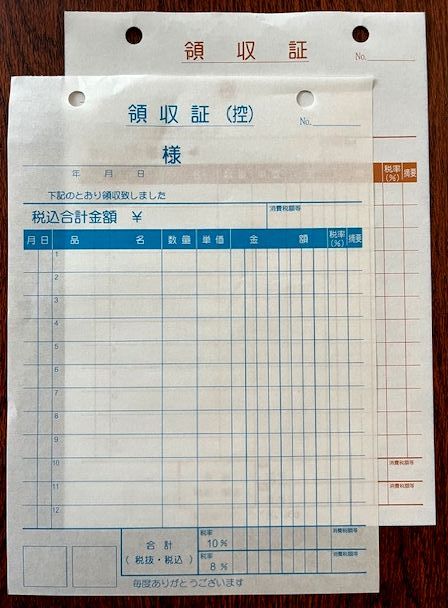 領収証
No.
税率(%) 摘要
消費税額等
消費税額等
領収証(控)
No.
様
年 月 日
下記のとおり領収致しました
税込合計金額 ¥
消費税額等
月 日 品名 数量 単価 金額 税率(%) 摘要
1
2
3
4
5
6
7
8
9
10
11
12
合計
(税抜・税込)
税率 10% 消費税額等
税率 8% 消費税額等
毎度ありがとうございます